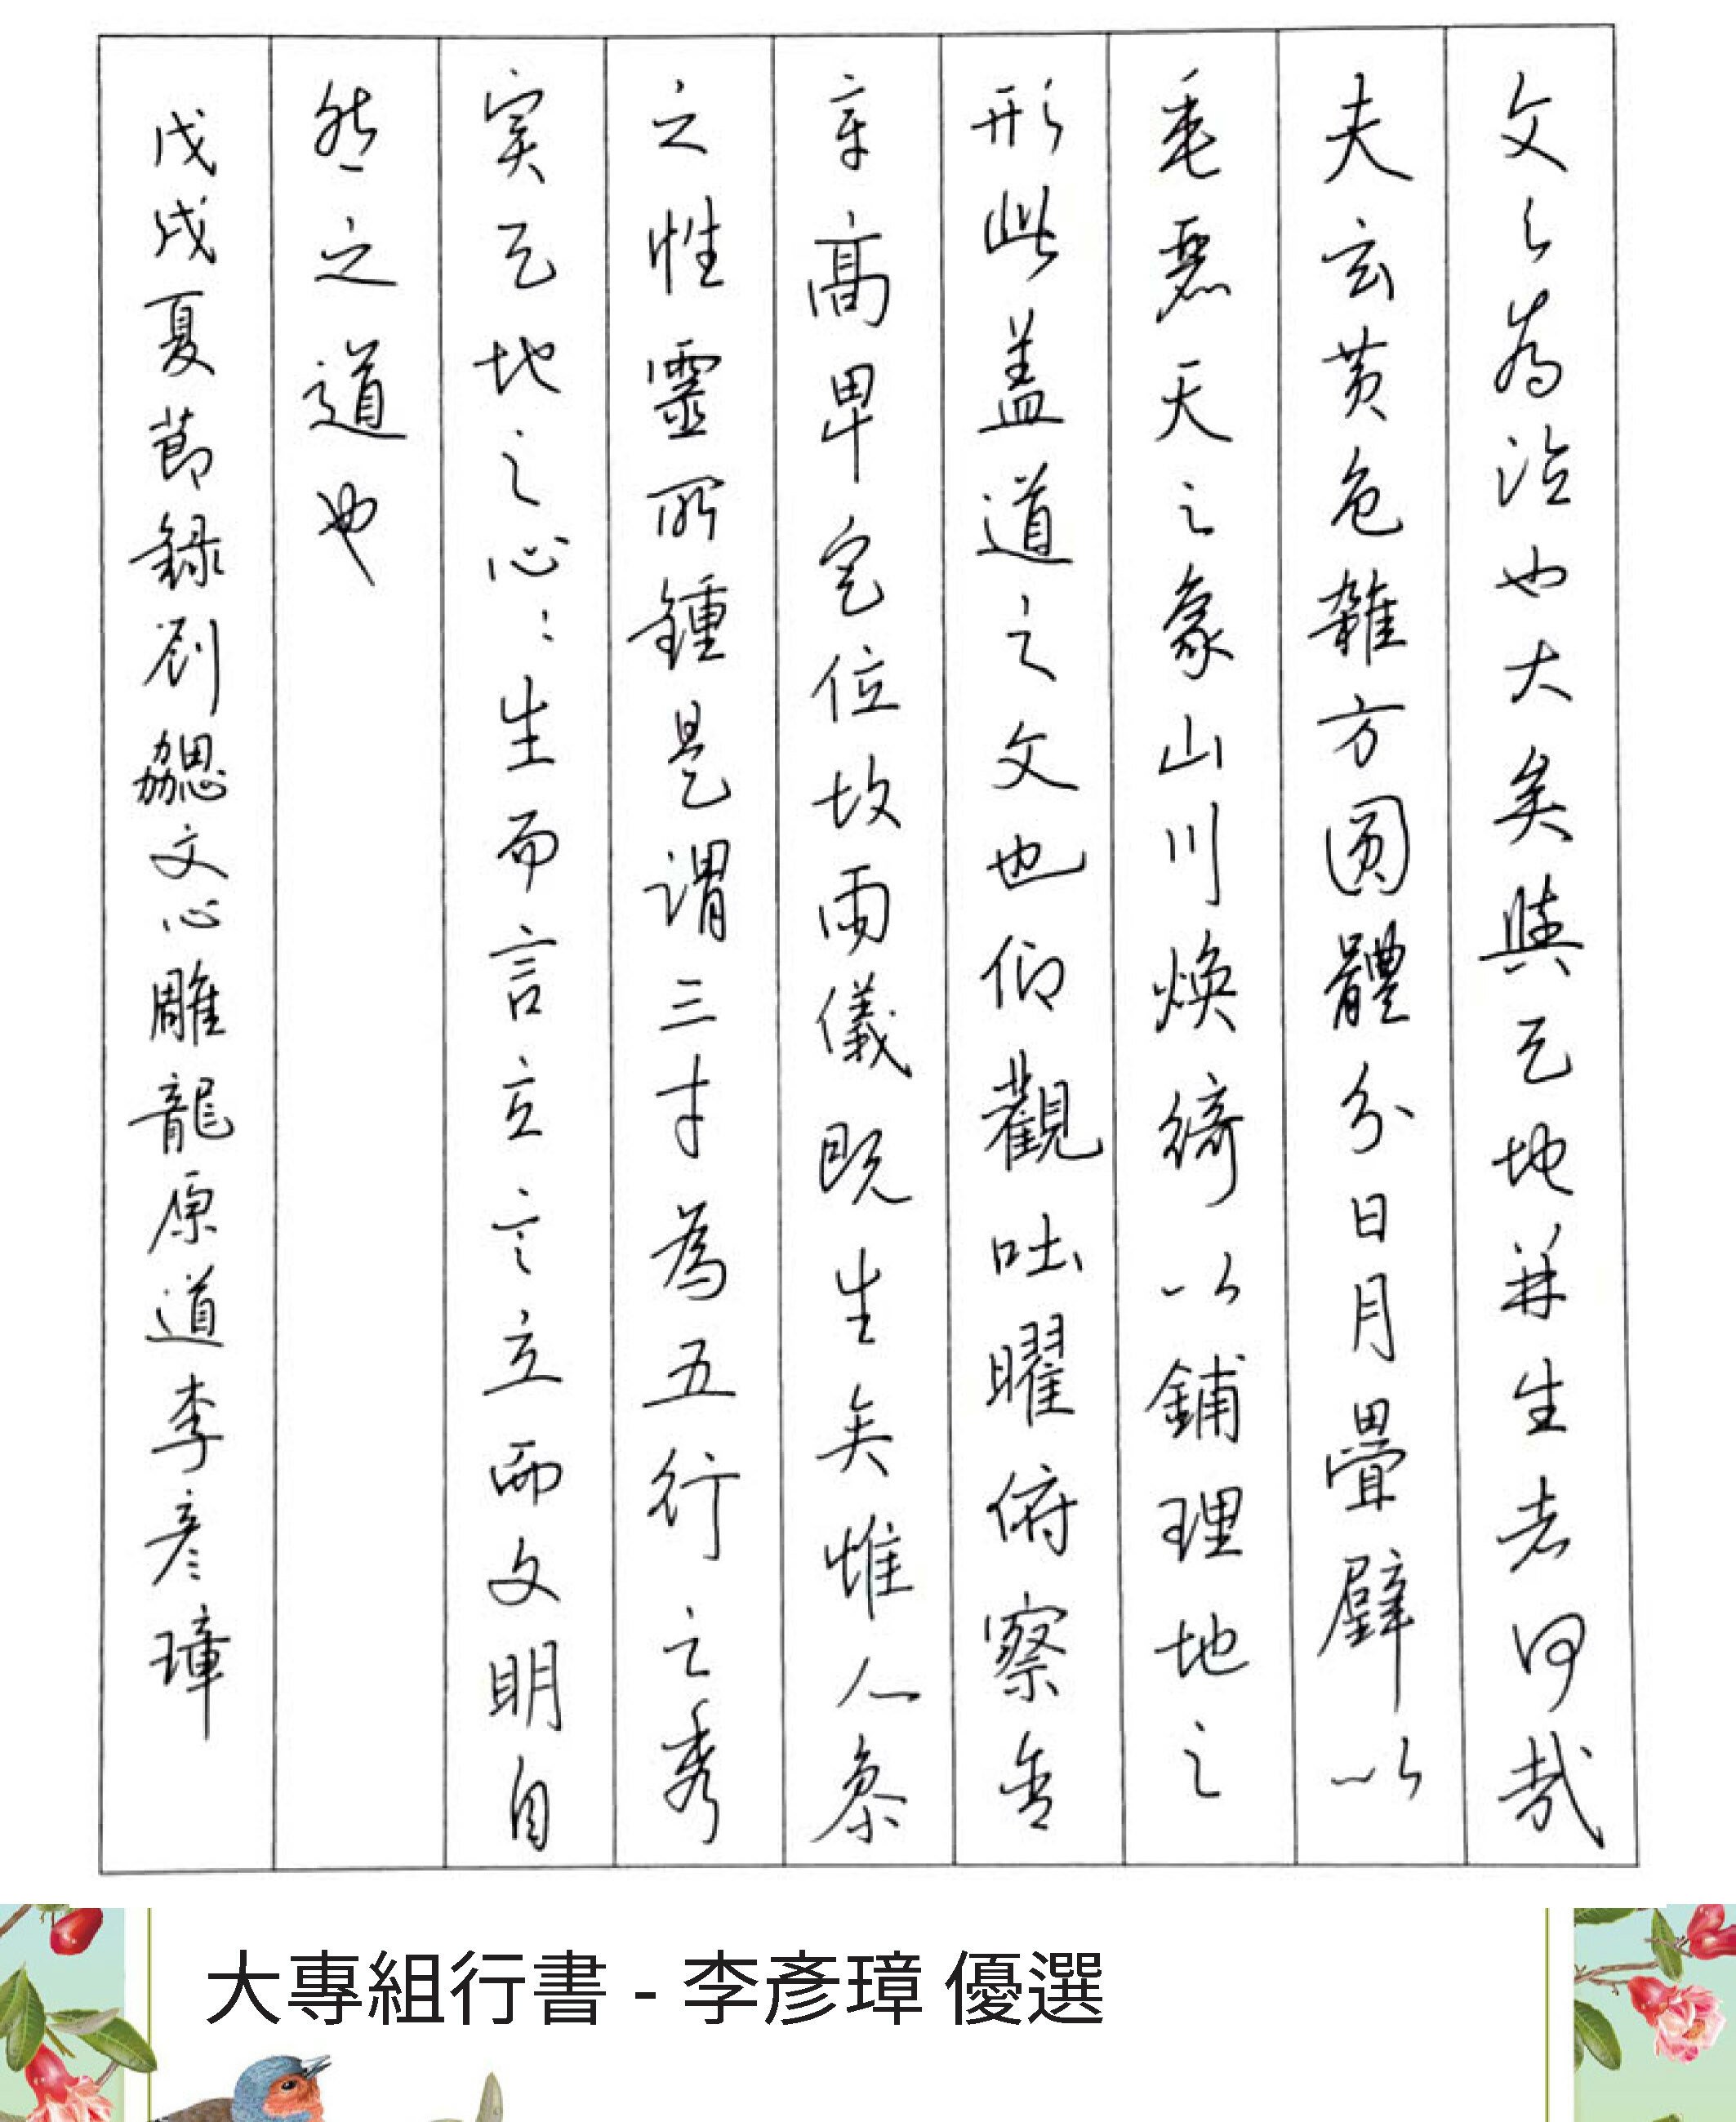 文之為德也大矣與天地並生者何哉
夫玄黃色雜方圓體分日月疊璧以
垂麗天之象山川煥綺以鋪理地之
形此盖道之文也仰觀吐曜俯察含
章高卑定位故兩儀既生矣惟人參
之性靈所鍾是謂三才為五行之秀
実天地之心：生而言立言立而文明自
然之道也
戊戌夏節録劉勰文心雕龍原道李彥璋
大專組行書 - 李彥璋 優選